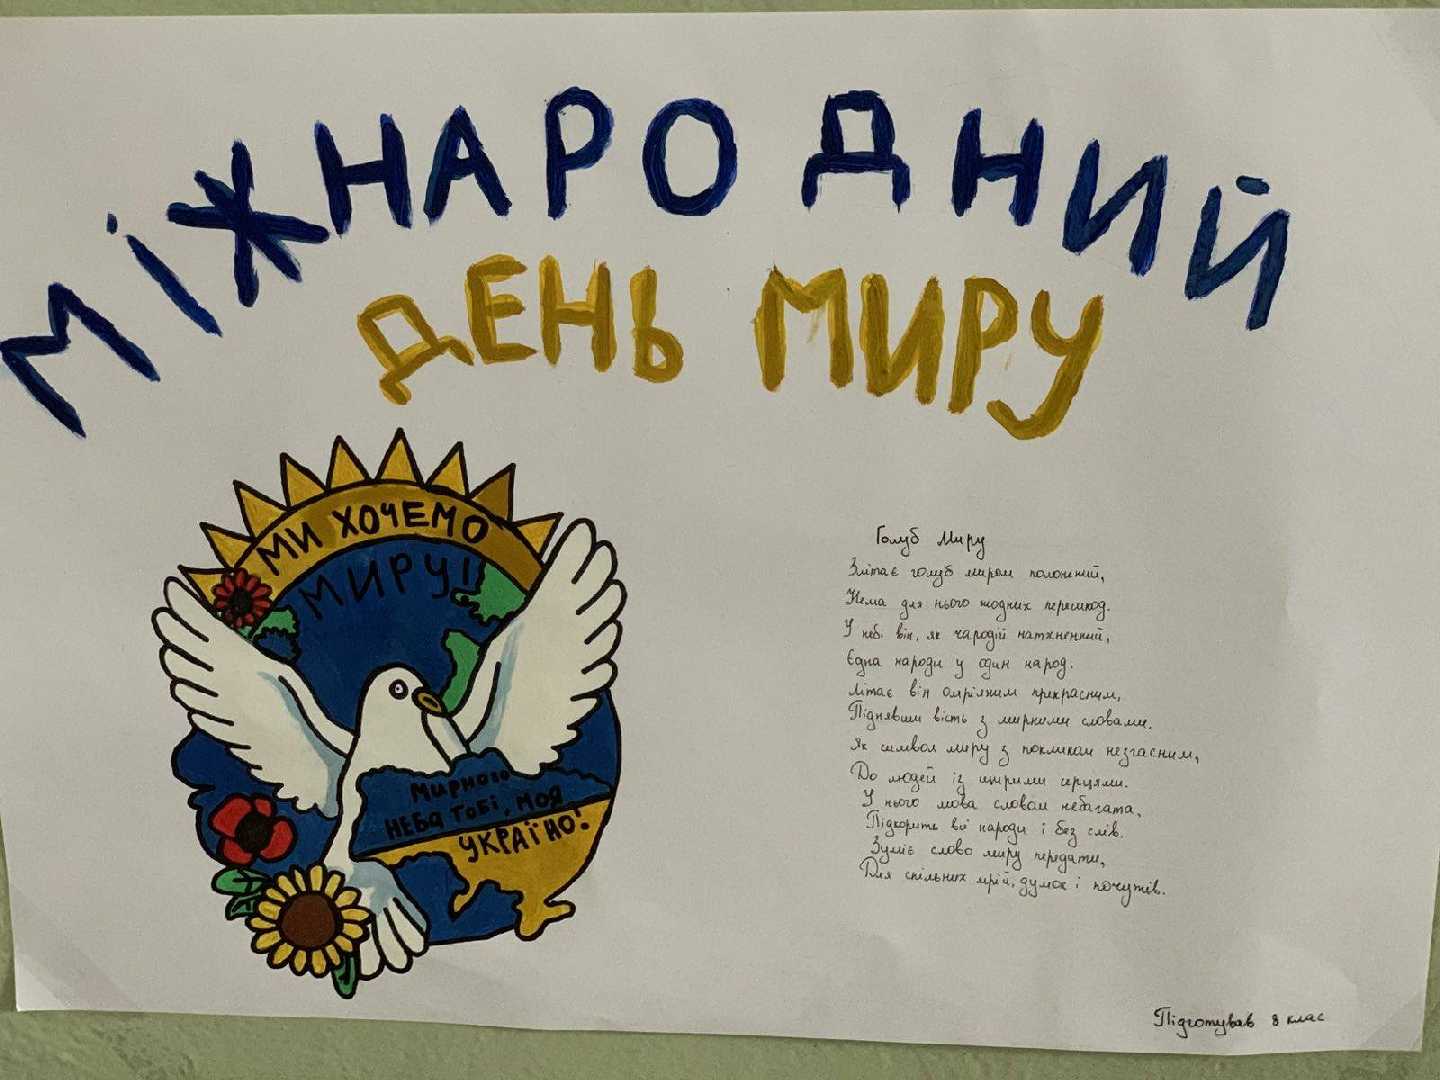 МІЖНАРОДНИЙ
ДЕНЬ МИРУ
МИ ХОЧЕМО
МИРУ!
Мирного
НЕБА ТОБІ, МОЯ
УКРАЇНО!
Голуб Миру
Злітає голуб миром полонений,
Нема для нього жодних перешкод.
У небі він, як чародій натхненний,
Єдна народи у один народ.
Літає він омріяним прекрасним,
Піднявши вість з мирними словами.
Як символ миру з покликом незгасним,
До людей із щирими серцями.
У нього мова словом небагата,
Підкорить всі народи і без слів.
Зуміє слово миру передати,
Для спільних мрій, думок і почуттів.
Підготував 8 клас